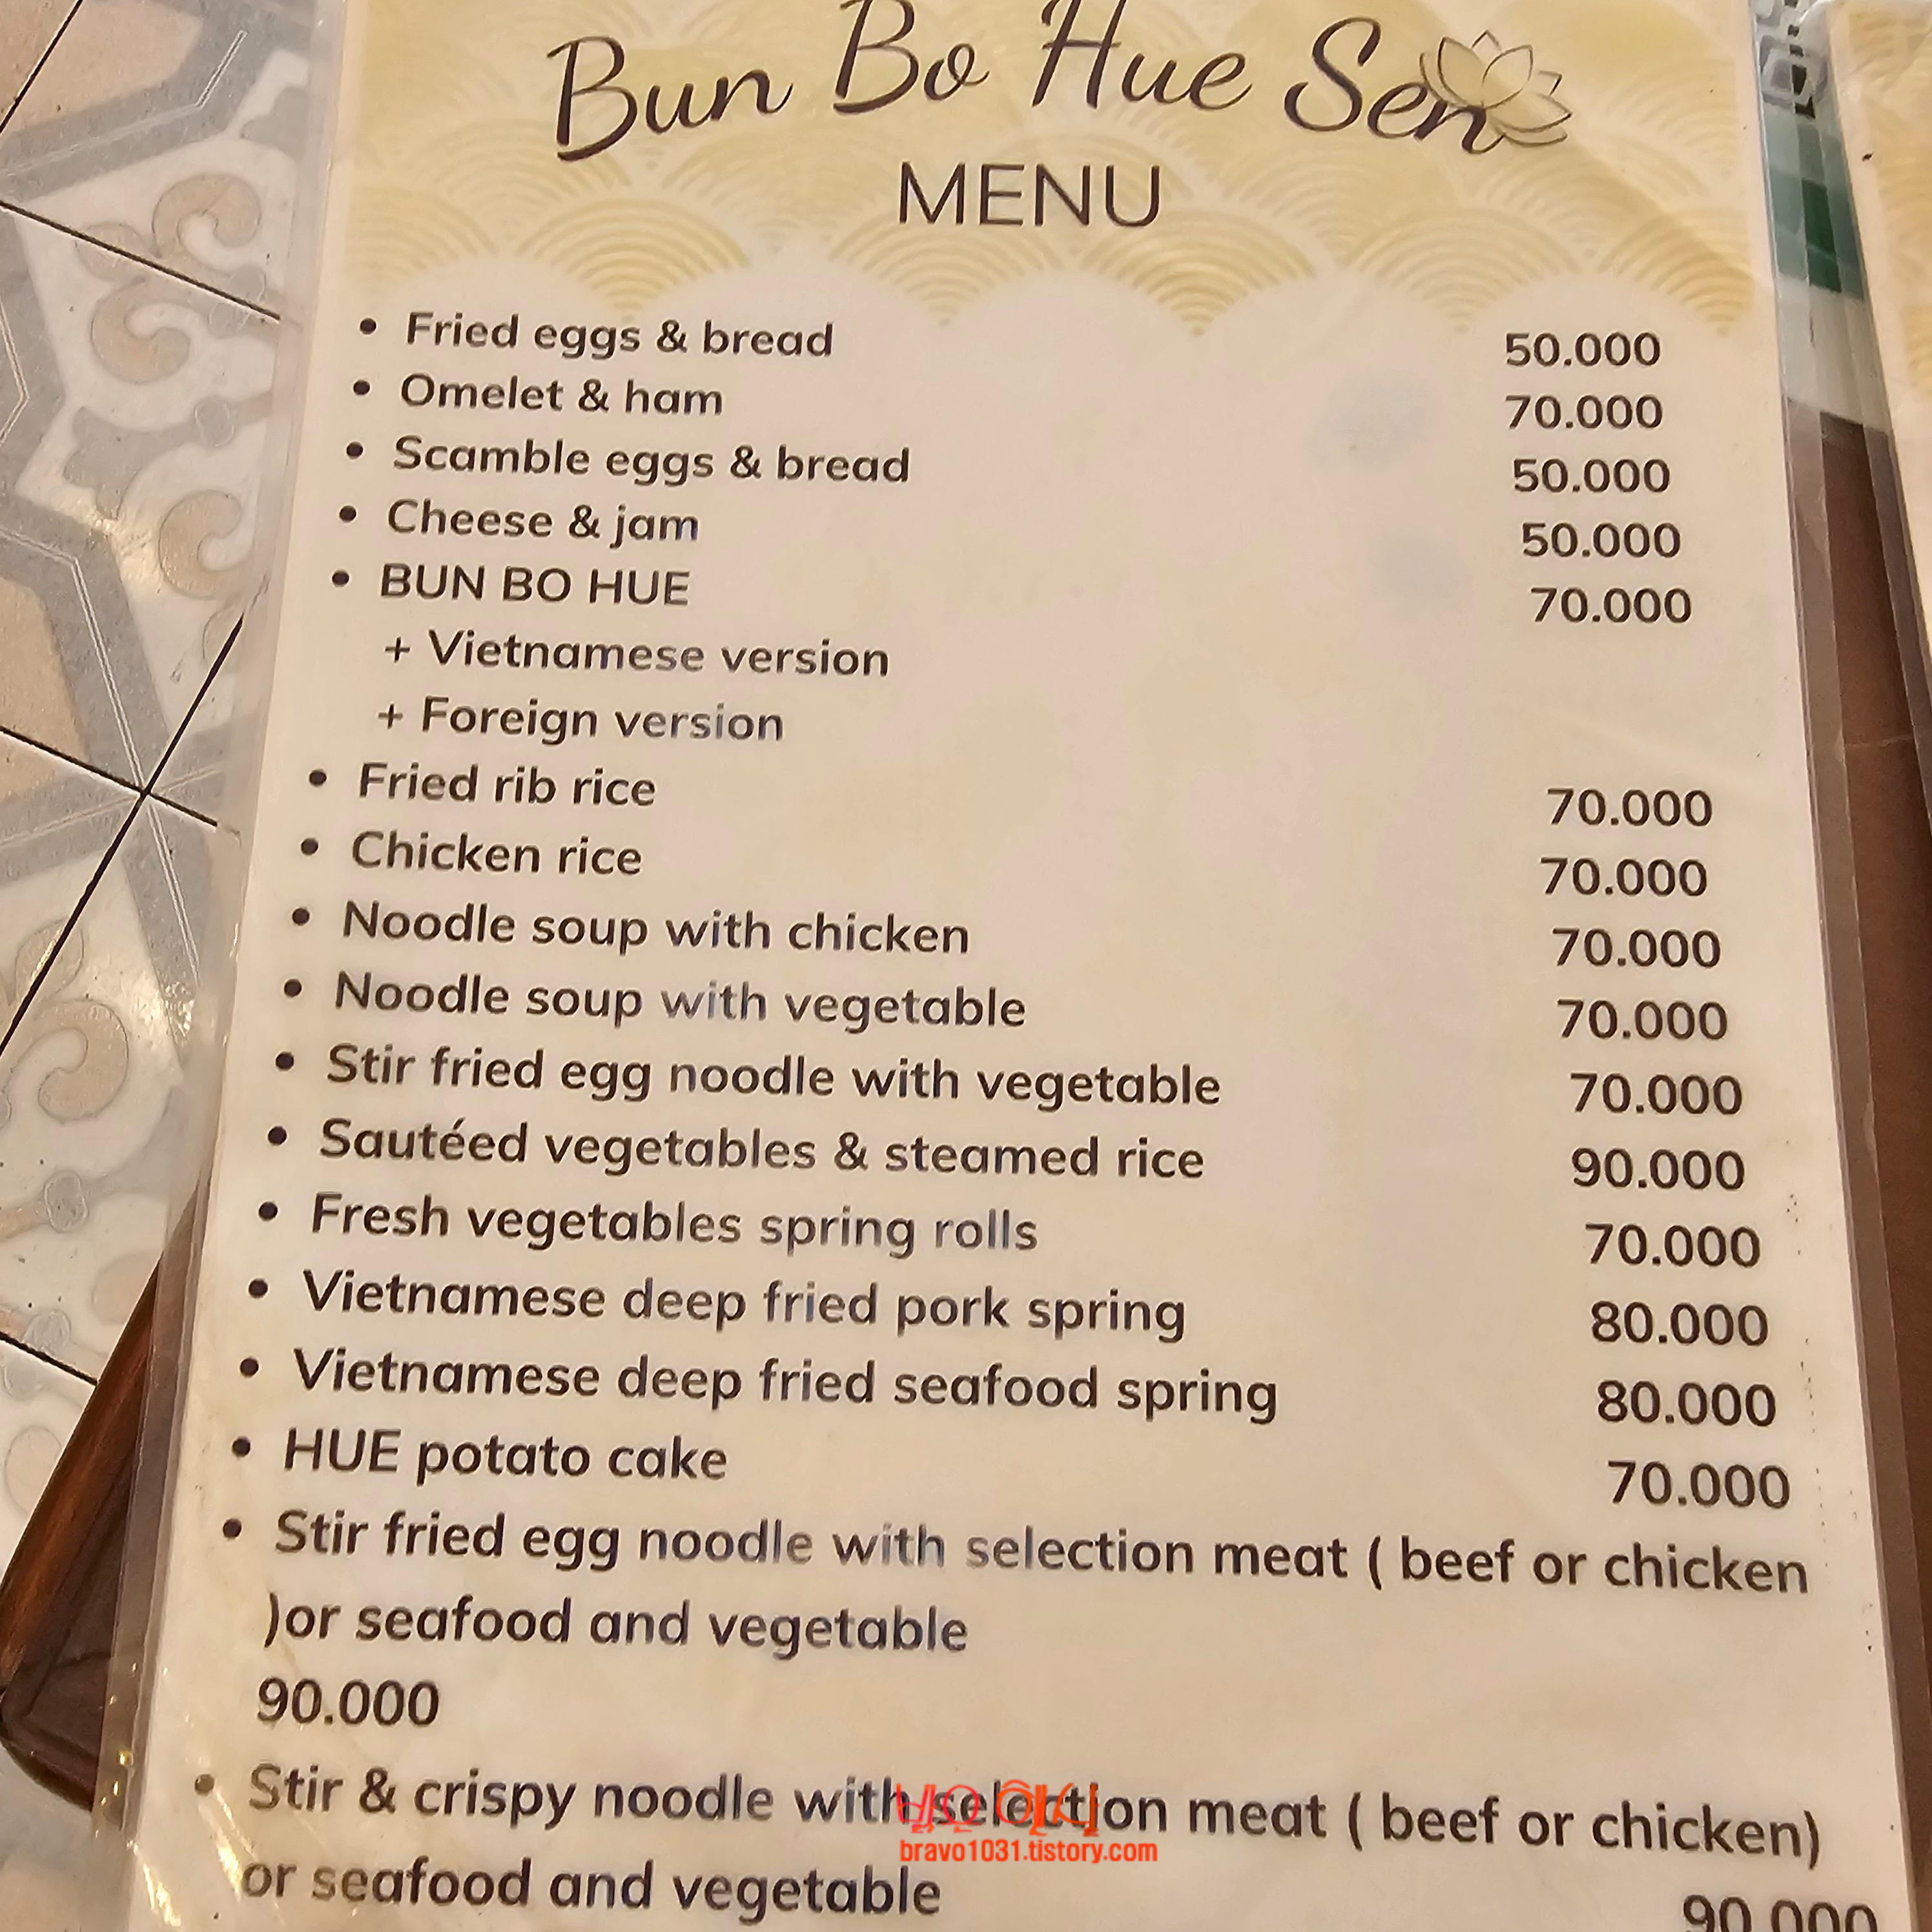 Bun Bo Hue Sen
MENU
• Fried eggs & bread 50.000
• Omelet & ham 70.000
• Scamble eggs & bread 50.000
• Cheese & jam 50.000
• BUN BO HUE 70.000
+ Vietnamese version
+ Foreign version
• Fried rib rice 70.000
• Chicken rice 70.000
• Noodle soup with chicken 70.000
• Noodle soup with vegetable 70.000
• Stir fried egg noodle with vegetable 70.000
• Sautéed vegetables & steamed rice 90.000
• Fresh vegetables spring rolls 70.000
• Vietnamese deep fried pork spring 80.000
• Vietnamese deep fried seafood spring 80.000
• HUE potato cake 70.000
• Stir fried egg noodle with selection meat ( beef or chicken
)or seafood and vegetable
90.000
• Stir & crispy noodle with selection meat ( beef or chicken)
bravo1031.tistory.com
or seafood and vegetable 90.000